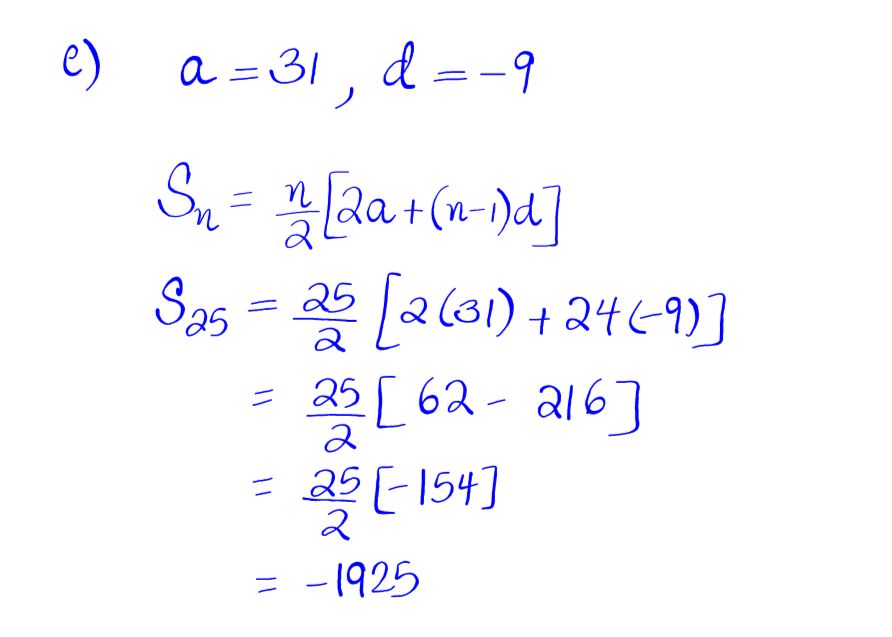 e) a = 31, d = -9
Sₙ = n/2 [2a + (n-1)d]
S₂₅ = 25/2 [2(31) + 24(-9)]
= 25/2 [62 - 216]
= 25/2 [-154]
= -1925